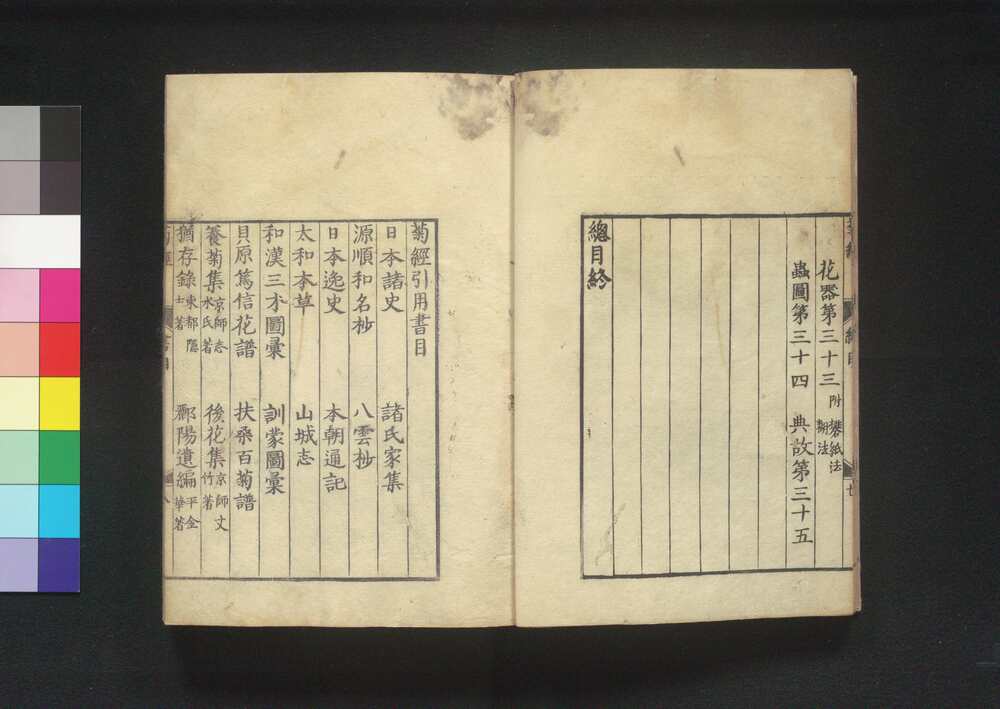 花器第三十三 附 礬紙法 糊法
蟲圖第三十四 典故第三十五
總目終
菊經引用書目
日本諸史 諸氏家集
源順和名抄 八雲抄
日本逸史 本朝通記
太和本草 山城志
和漢三才圖彙 訓蒙圖彙
貝原篤信花譜 扶桑百菊譜
養菊集 京師志水氏著 後花集 京師丈竹著
猶存錄 東都隱士著 酈陽遺編 平金華著